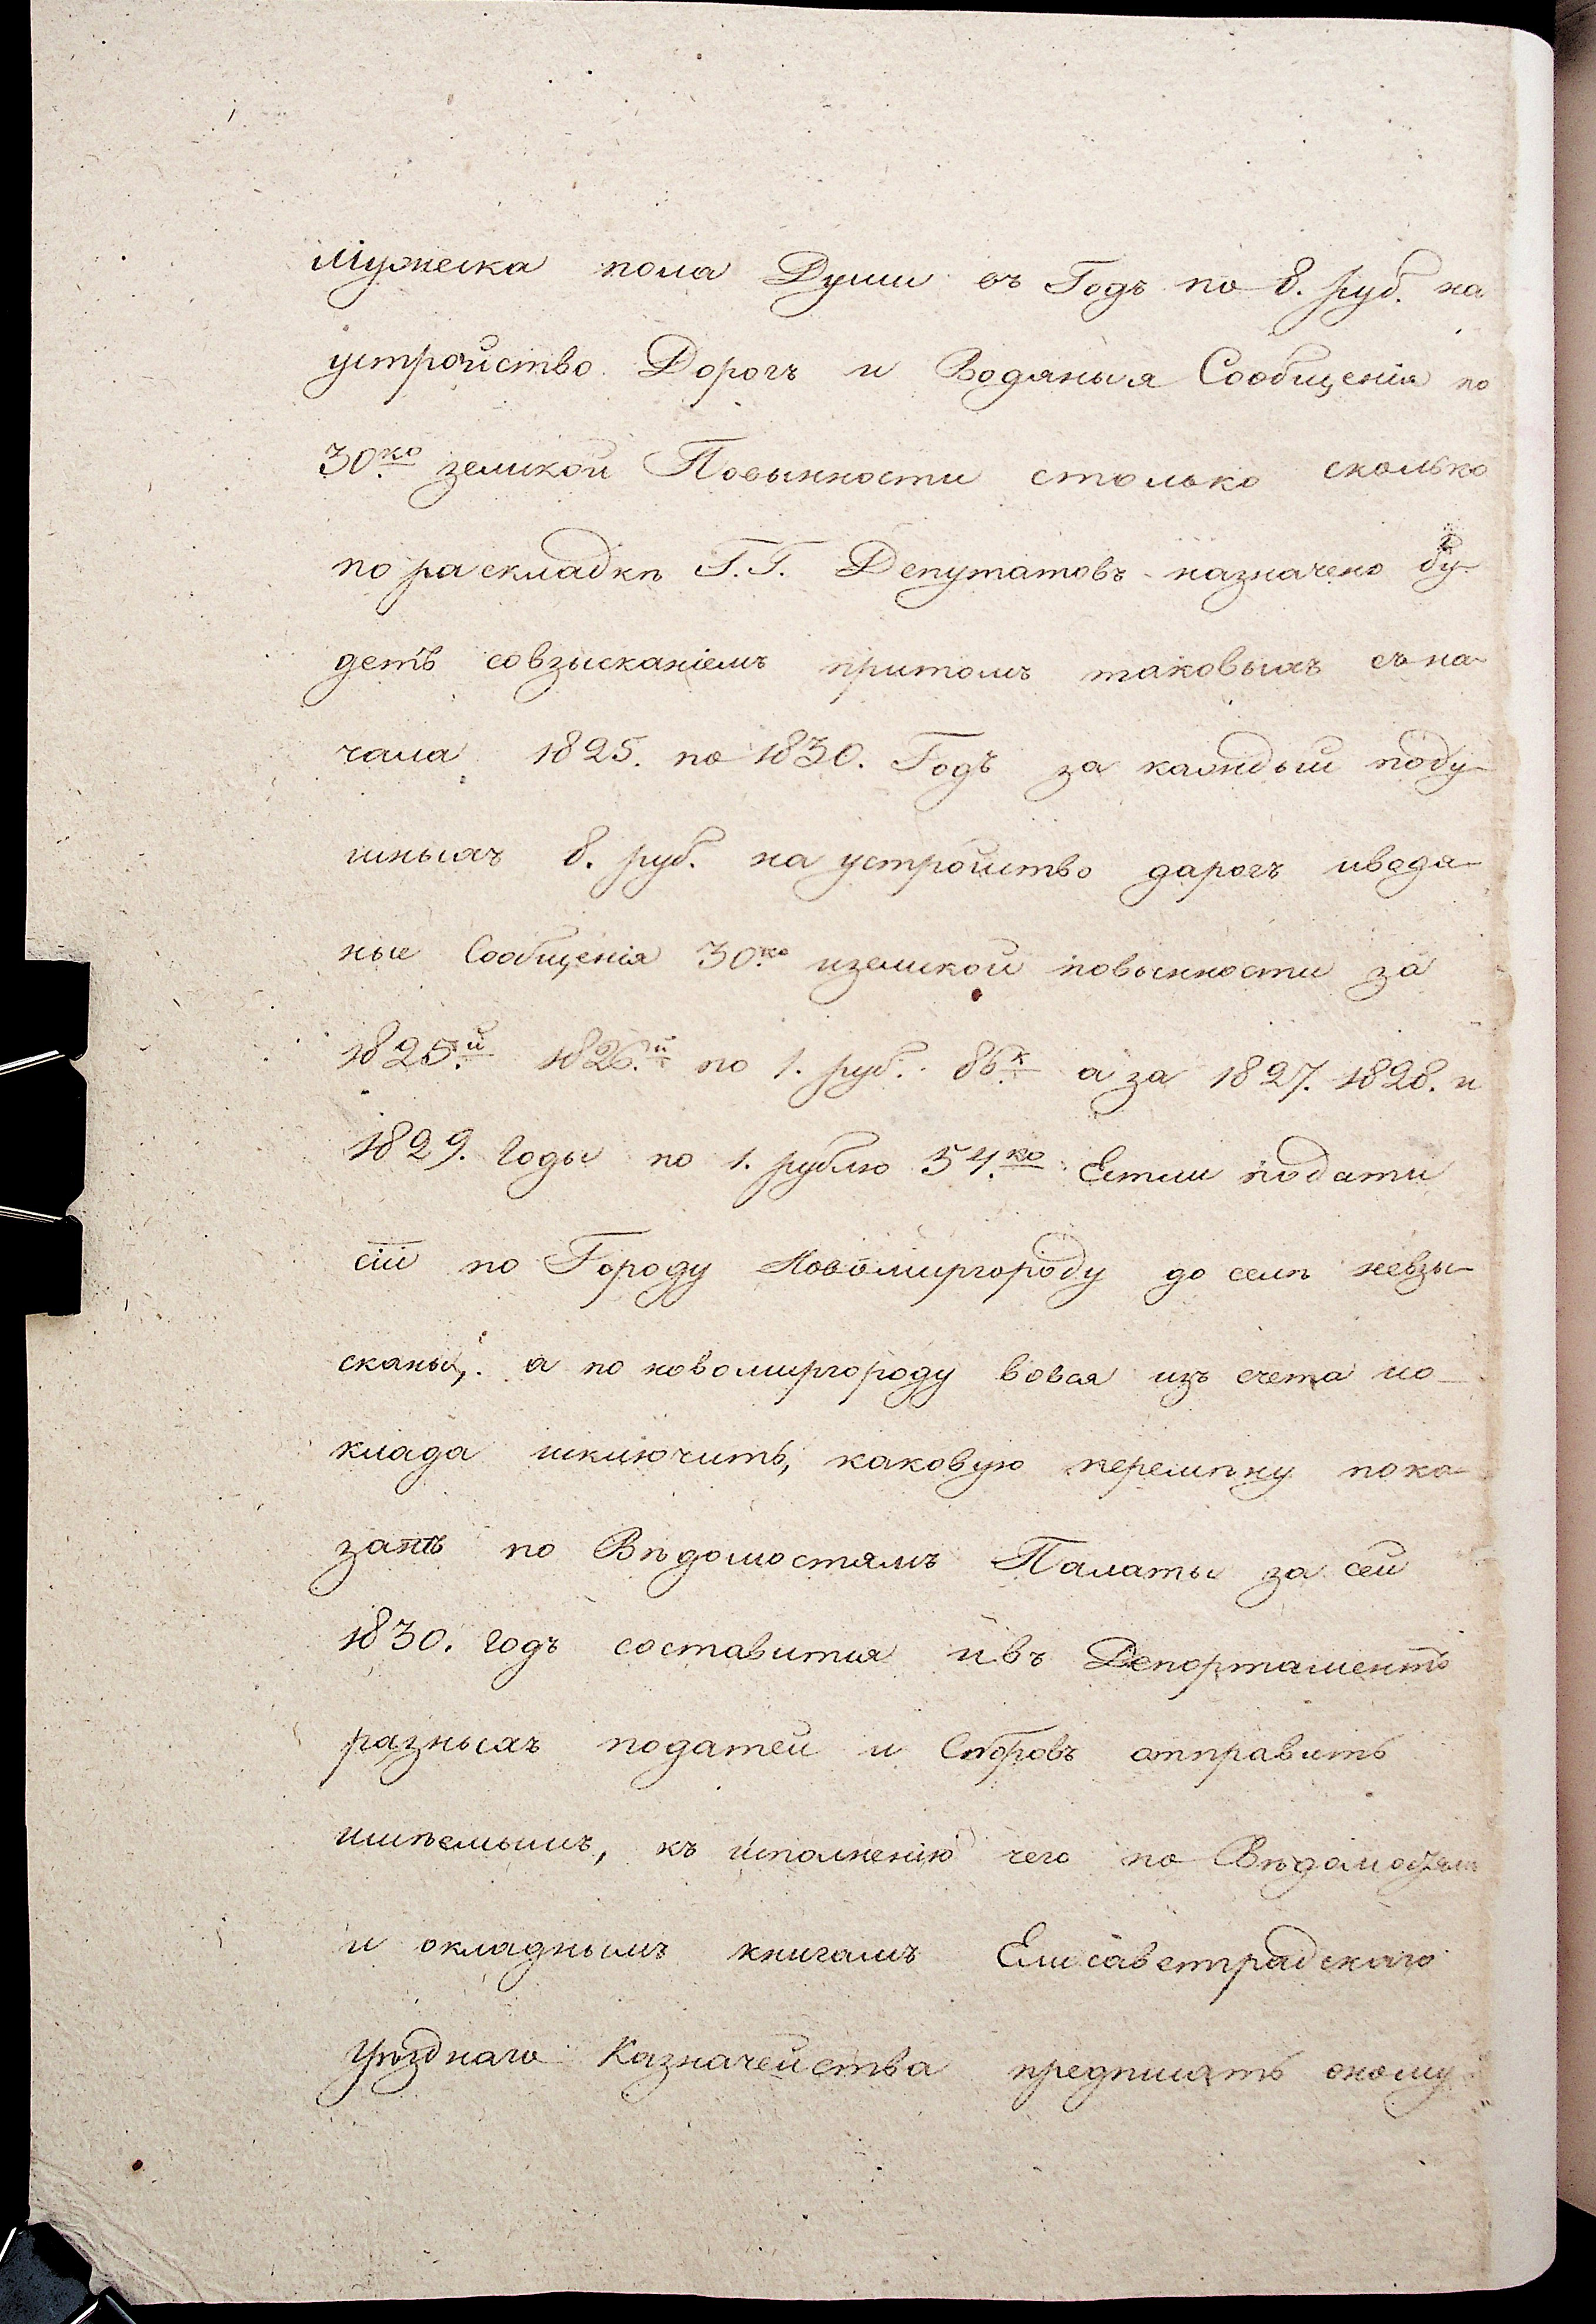 Мужеска пола Души въ Годъ по 8. руб. на
устройство Дорогъ и Водяныя Сообщенія по
30.ко земской Повынности столько сколько
по раскладкѣ Г.Г. Депутатовъ назначено бу-
детъ совзысканіемъ притомъ таковыхъ съ на-
чала 1825. по 1830. Годъ за каждый поду-
шныхъ 8. руб. на устройство дарогъ иводя-
ные Сообщенія 30.ко иземской повынности за
1825.й 1826.й по 1. руб. 86.к а за 1827. 1828. и
1829. Годы по 1. рублю 54.ко Естли подати
сіи по Городу Новомиргороду до семъ невзы-
сканы, а по новомиргороду вовся изъ счета ио-
клада исключить, каковую перемѣну пока-
зать по Вѣдомостямъ Палаты за сей
1830. годъ составится ивъ Депортаментъ
разныхъ податей и Сборовъ отправить
имѣемымъ, къ исполненію чего по Вѣдомостям
и окладнымъ книгамъ Елисаветградскаго
Уѣзднаго Казначейства предписать оному